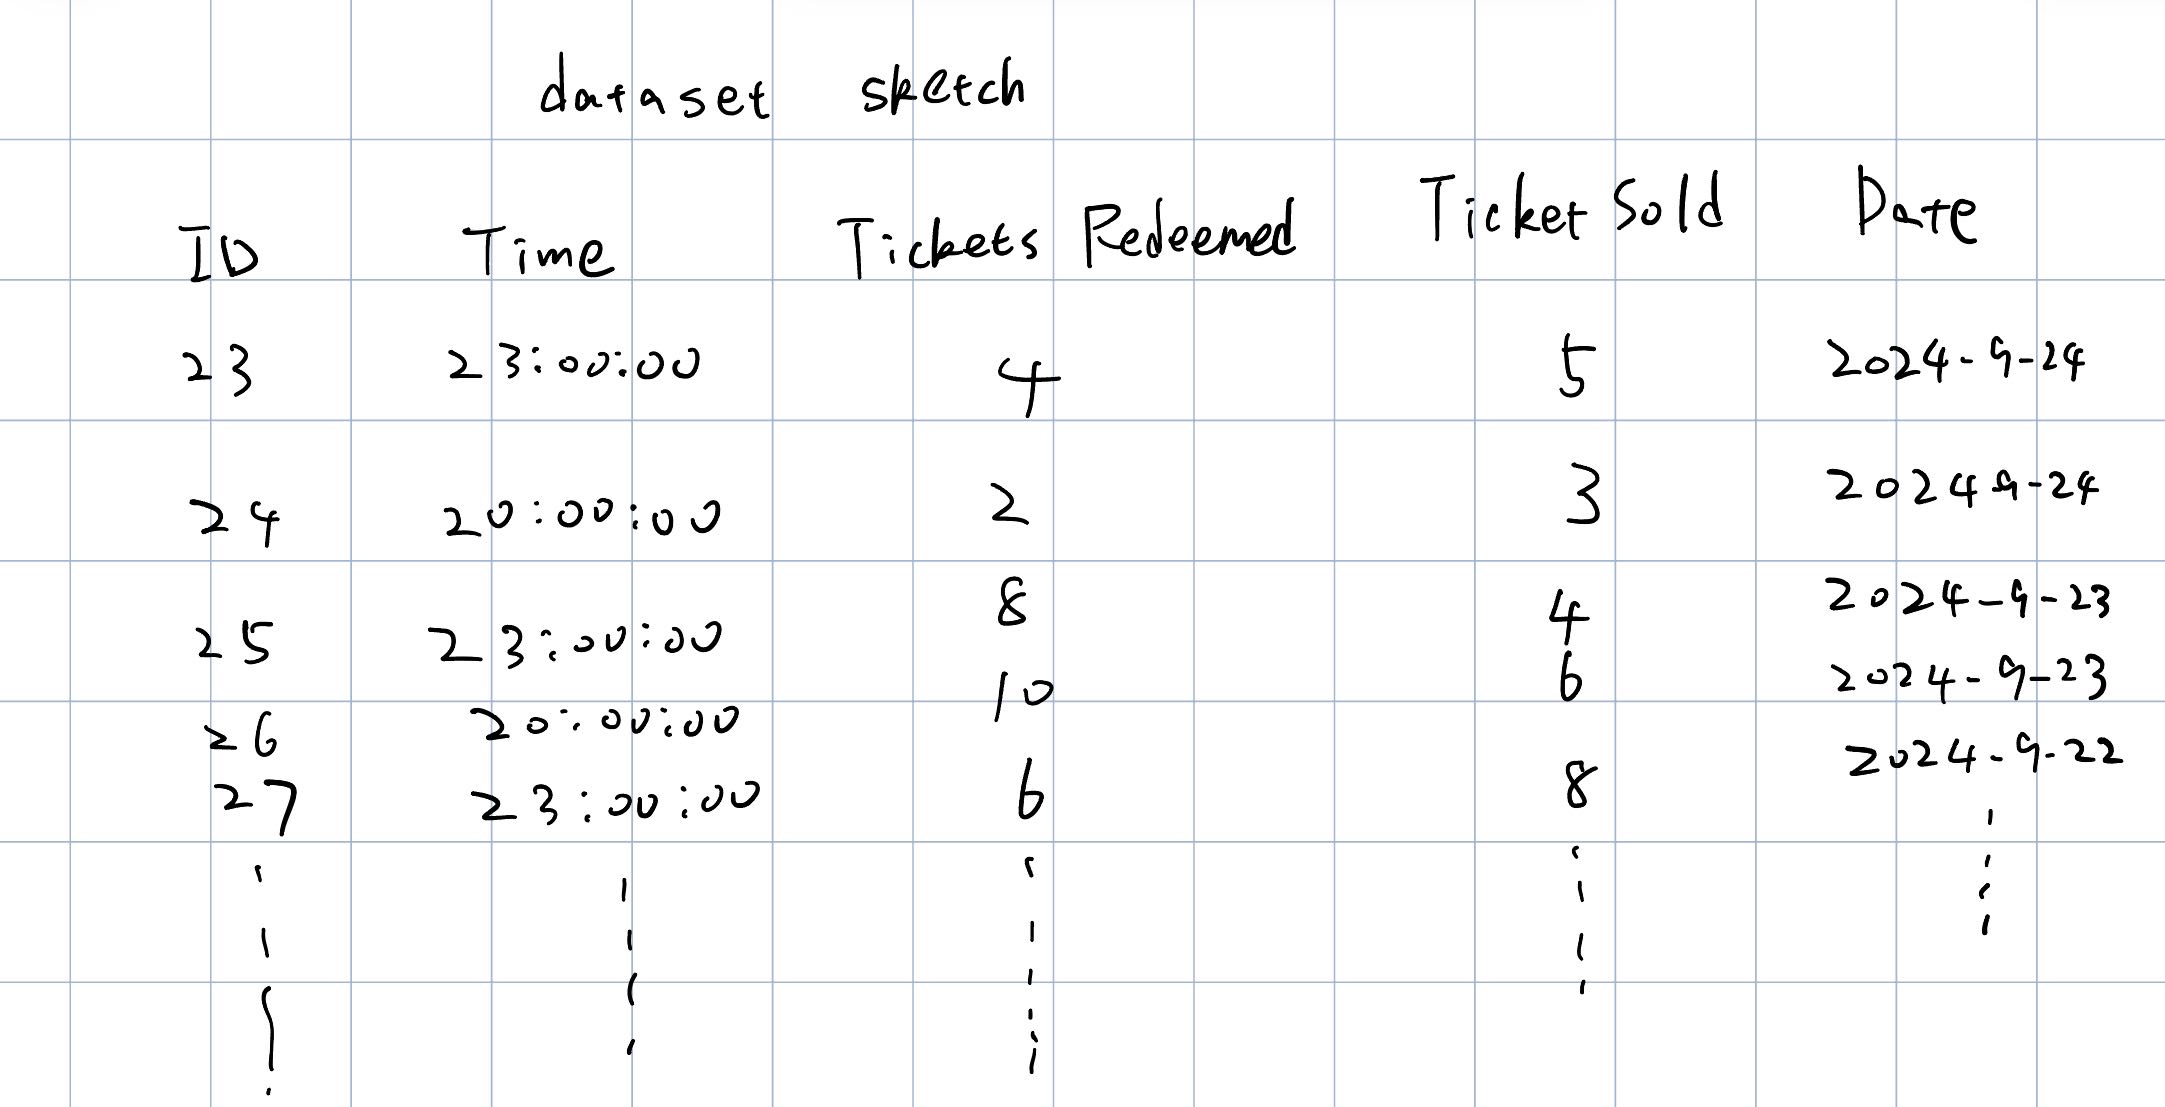 dataset sketch
ID Time Tickets Redeemed Ticket Sold Date
23 23:00:00 4 5 2024-9-24
24 20:00:00 2 3 20249-24
25 23:00:00 8 4 2024-9-23
26 20:00:00 10 6 2024-9-23
27 23:00:00 6 8 2024-9-22